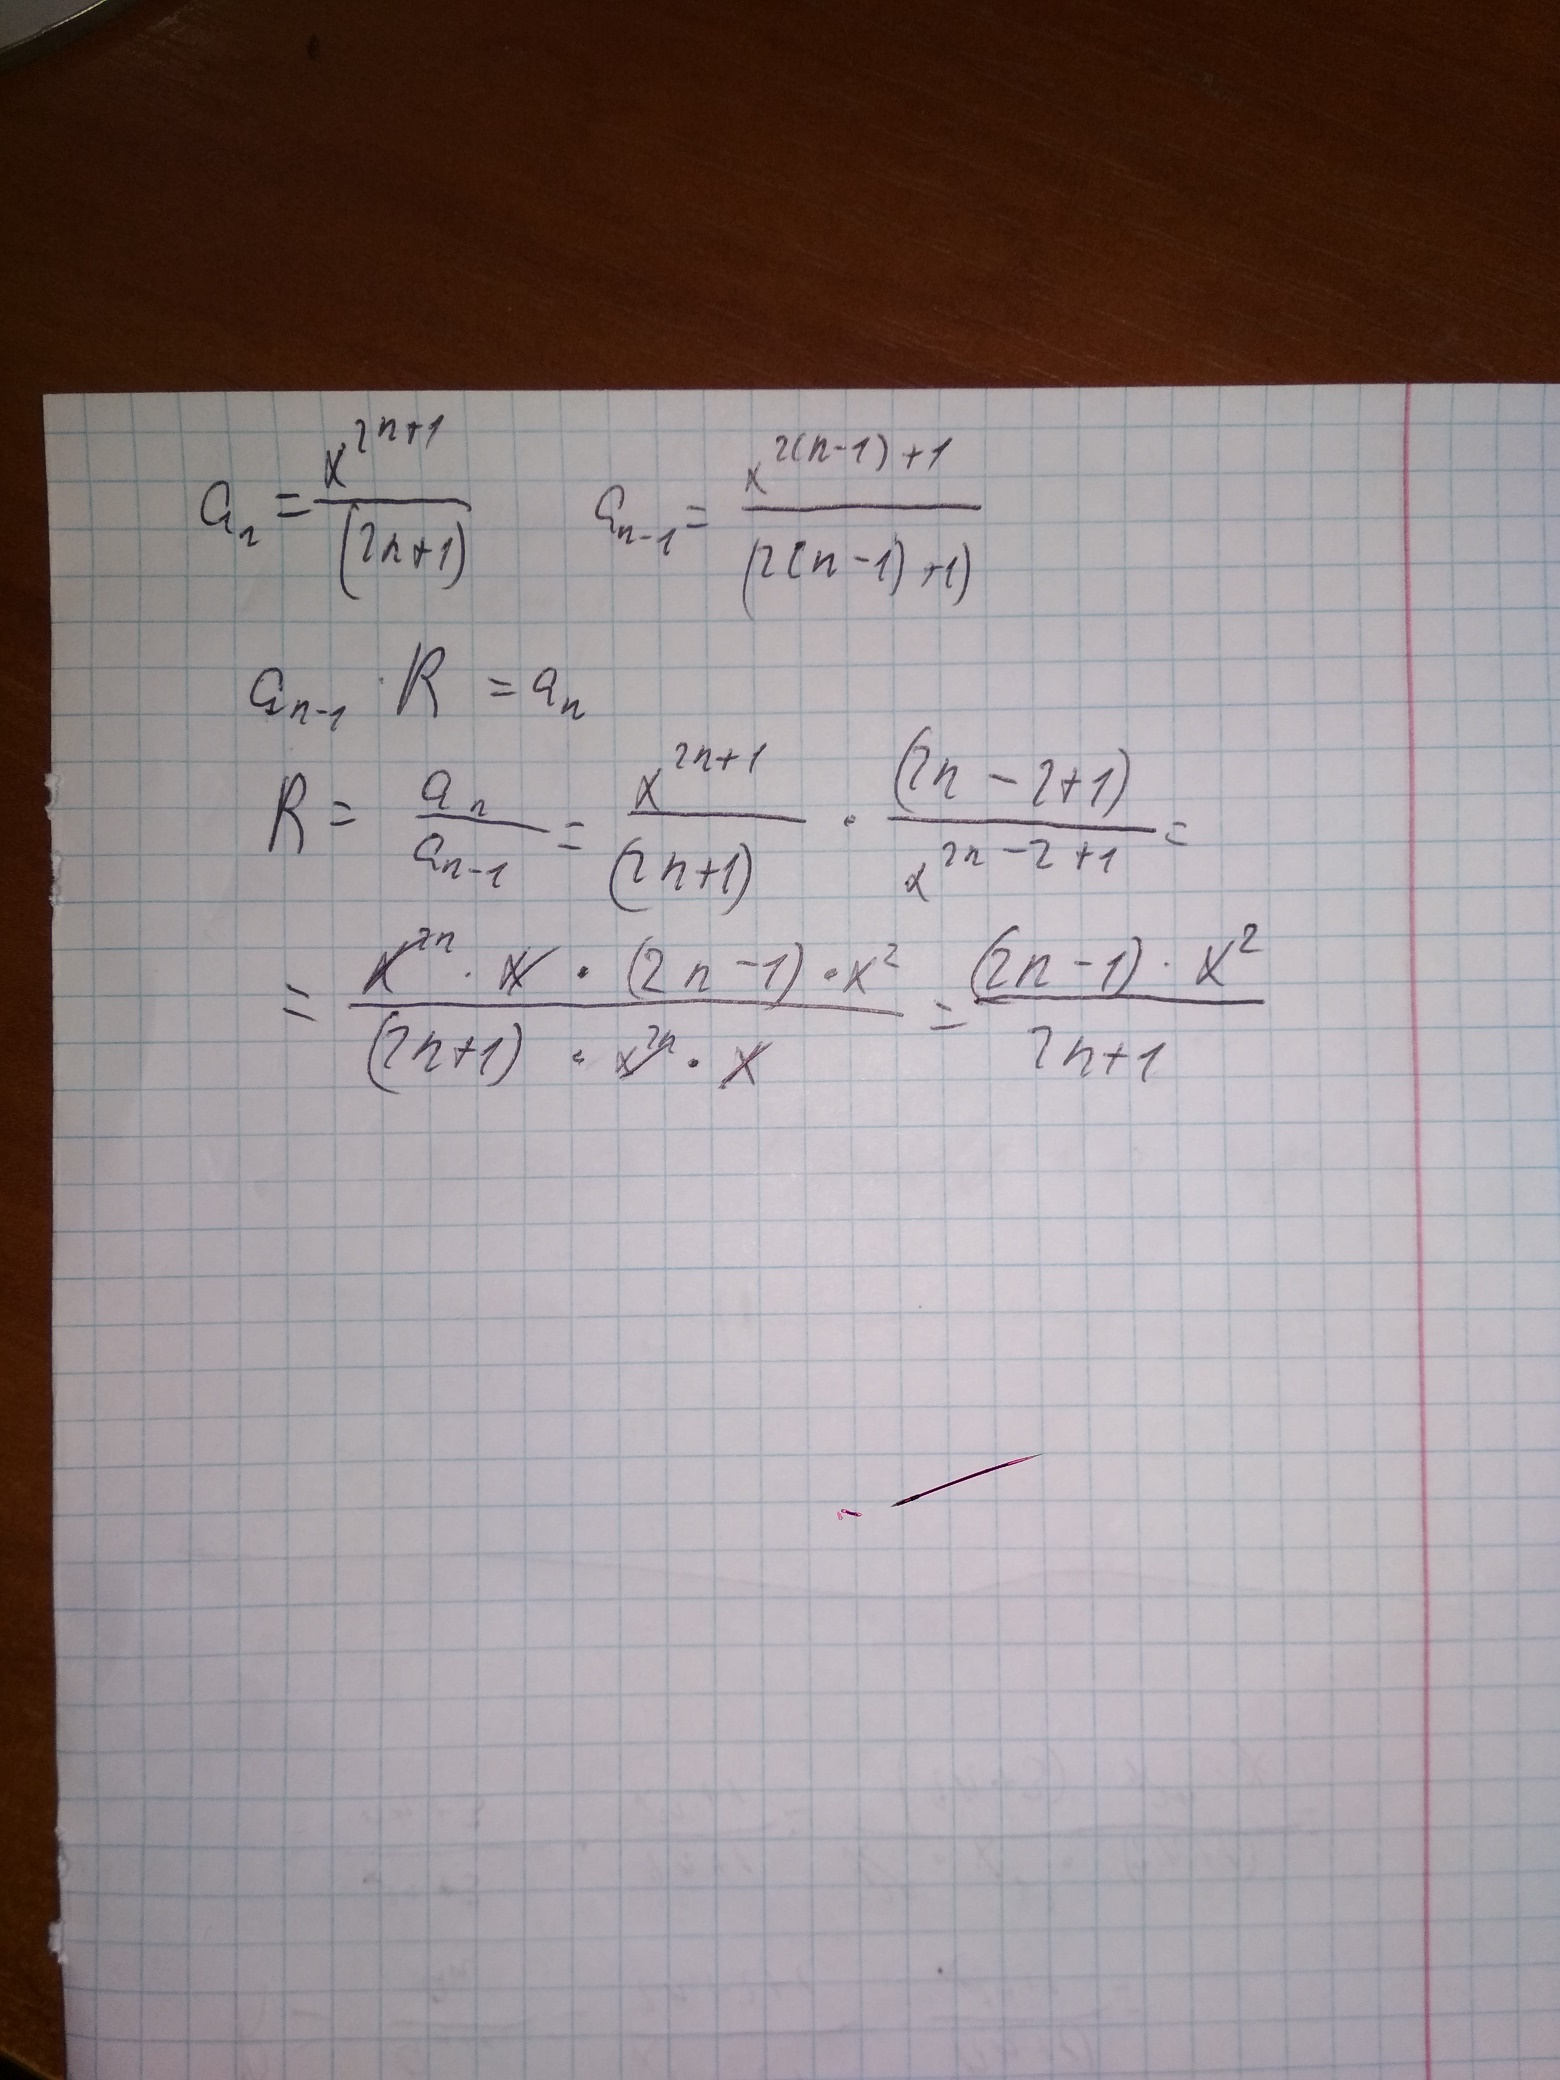 aₙ = x²ⁿ⁺¹ / (2n+1)    aₙ₋₁ = x²⁽ⁿ⁻¹⁾⁺¹ / (2(n-1)+1)
aₙ₋₁ · R = aₙ
R = aₙ / aₙ₋₁ = x²ⁿ⁺¹ / (2n+1) · (2n-2+1) / x²ⁿ⁻²⁺¹ =
= x²ⁿ · x · (2n-1) · x² / (2n+1) · x²ⁿ · x = (2n-1) · x² / 2n+1